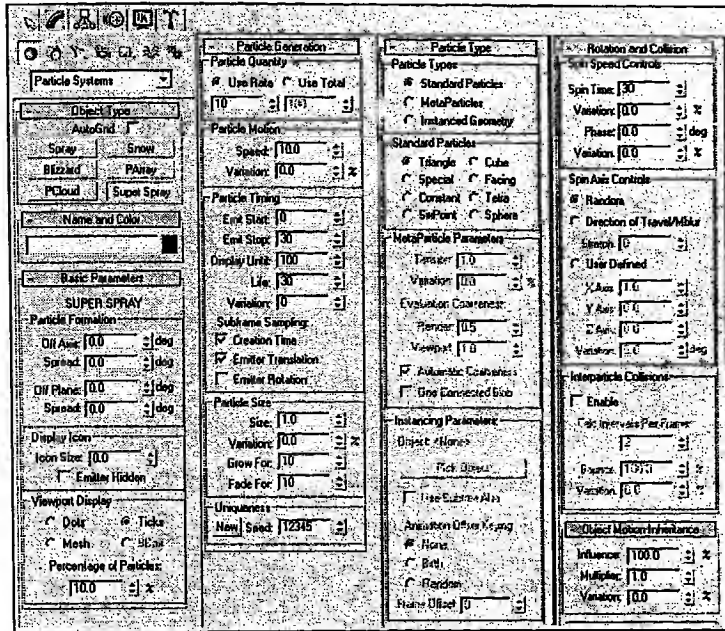 Particle Systems
Object Type
AutoGrid
Spray Snow
Blizzard PArray
PCloud Super Spray
Name and Color
Basic Parameters
SUPER SPRAY
Particle Formation
Off Axis: 0.0 deg
Spread: 0.0 deg
Off Plane: 0.0 deg
Spread: 0.0 deg
Display Icon
Icon Size: 0.0
Emitter Hidden
Viewport Display
Dots Ticks
Mesh BBox
Percentage of Particles:
10.0 %
Particle Generation
Particle Quantity
Use Rate Use Total
10
Particle Motion
Speed: 10.0
Variation: 0.0 %
Particle Timing
Emit Start: 0
Emit Stop: 30
Display Until: 100
Life: 30
Variation: 0
Subframe Sampling:
Creation Time
Emitter Translation
Emitter Rotation
Particle Size
Size: 1.0
Variation: 0.0 %
Grow For: 10
Fade For: 10
Uniqueness
New Seed: 12345
Particle Type
Particle Types
Standard Particles
MetaParticles
Instanced Geometry
Standard Particles
Triangle Cube
Special Facing
Constant Tetra
SixPoint Sphere
MetaParticle Parameters
Tension: 1.0
Variation: 0.0 %
Evaluation Coarseness:
Render: 0.5
Viewport: 1.0
Automatic Coarseness
One Connected Blob
Instancing Parameters:
Object: <None>
Pick Object
Use Subtree Also
Animation Offset Keying
None
Birth
Random
Frame Offset: 0
Rotation and Collision
Spin Speed Controls
Spin Time: 30
Variation: 0.0 %
Phase: 0.0 deg
Variation: 0.0 %
Spin Axis Controls
Random
Direction of Travel/Mblur
Stretch: 0
User Defined
X Axis: 1.0
Y Axis: 0.0
Z Axis: 0.0
Variation: 0.0 deg
Interparticle Collisions
Enable
Calc Intervals Per Frame:
2
Bounce: 100.0 %
Variation: 0.0 %
Object Motion Inheritance
Influence: 100.0 %
Multiplier: 1.0
Variation: 0.0 %